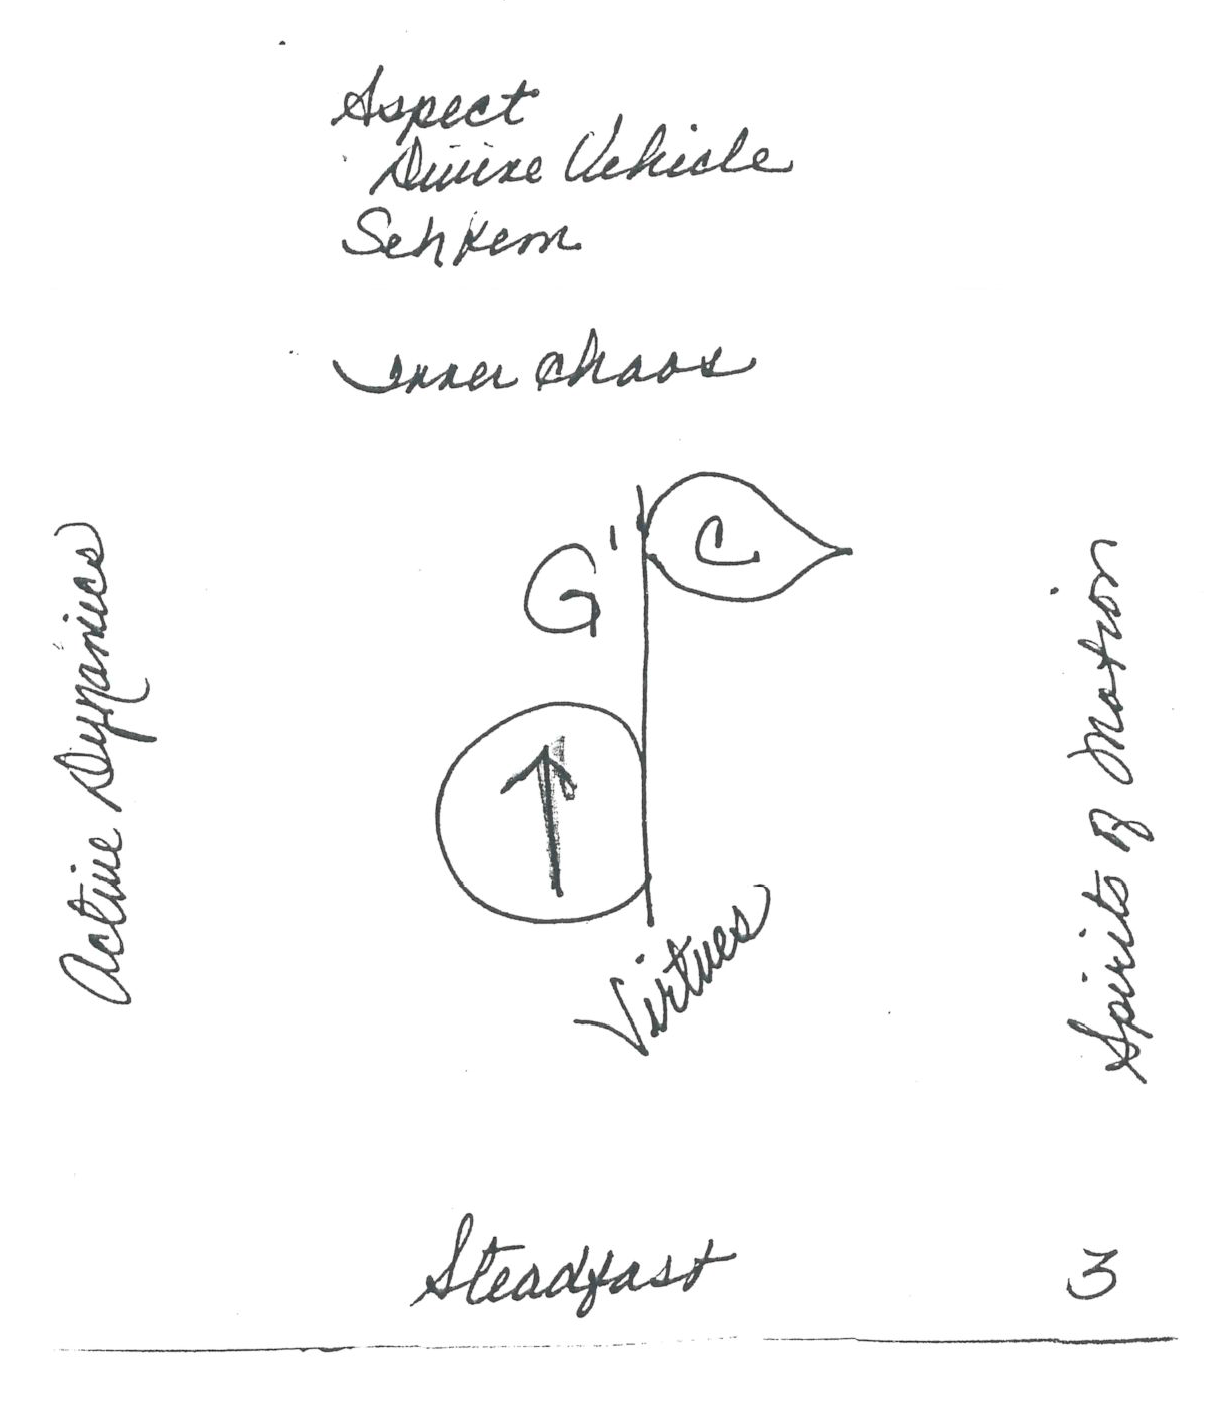 Aspect
Divine Vehicle
Sehkem
Inner Chaos
C
G'
Active Dynamics
Spirits of Motion
Virtues
Steadfast
3